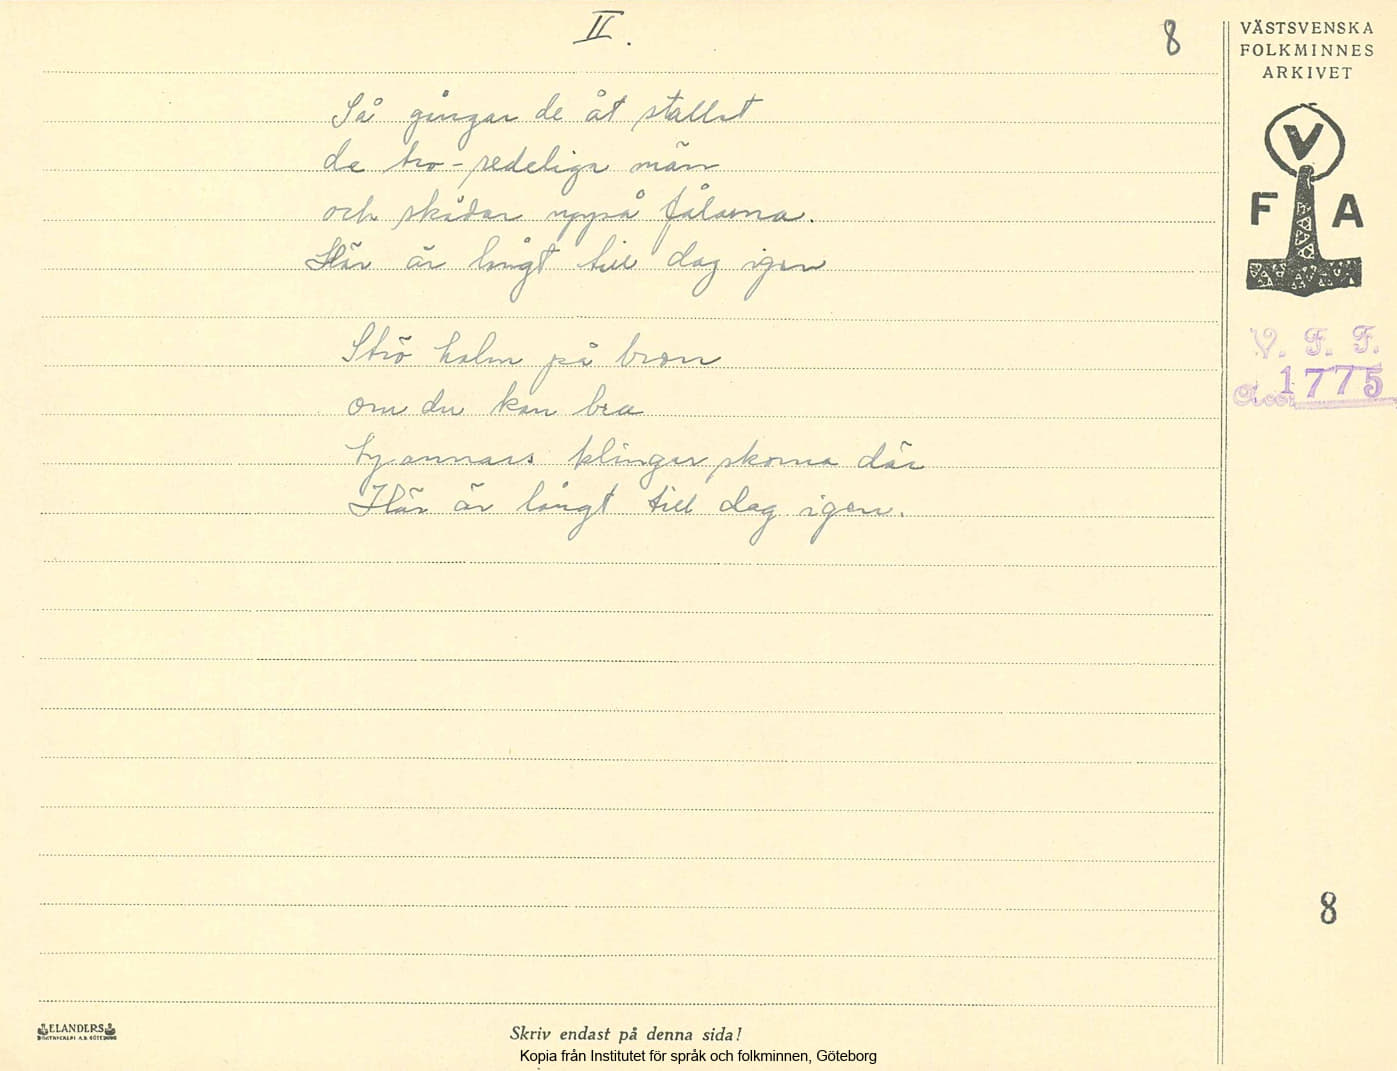 II.
8
VÄSTSVENSKA
FOLKMINNES
ARKIVET
V
F A
V. F. F.
Acc. 1775
Så gångar de åt stallet
de tro-redeliga män
och skådar uppå fålarna.
Här är långt till dag igen
Strö halm på bron
om du kan bra
ty annars klingar skorna där
Här är långt till dag igen.
8
ELANDERS
Skriv endast på denna sida!
Kopia från Institutet för språk och folkminnen, Göteborg